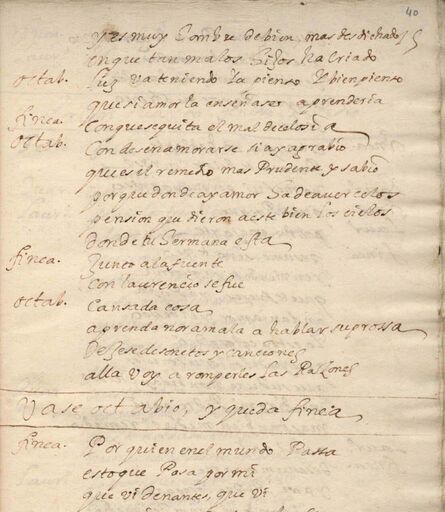 40
y es muy hombre de bien, mas desdichado
en que tan malos hijos ha criado
octab. luz va teniendo ya pienso y bien pienso
que si amor la enseñase aprenderia
finea. Con que se quita el mal de celosia
octab. Con desenamorarse si ay agrabio
que es il remedio mas prudente y sabio
porque donde ay amor ha de aver celos
pension que dieron a este bien los cielos
donde tu hermana esta
finea. Junto a la fuente
con laurencio se fue
octab. Cansada cosa
aprenda noramala a hablar su prossa
dejese de sonetos y canciones
alla voy a romperles las Razones
Vase octabio, y queda finea
finea. Por quien en el mundo Passa
esto que Pasa por mi
que vi denantes, que vi